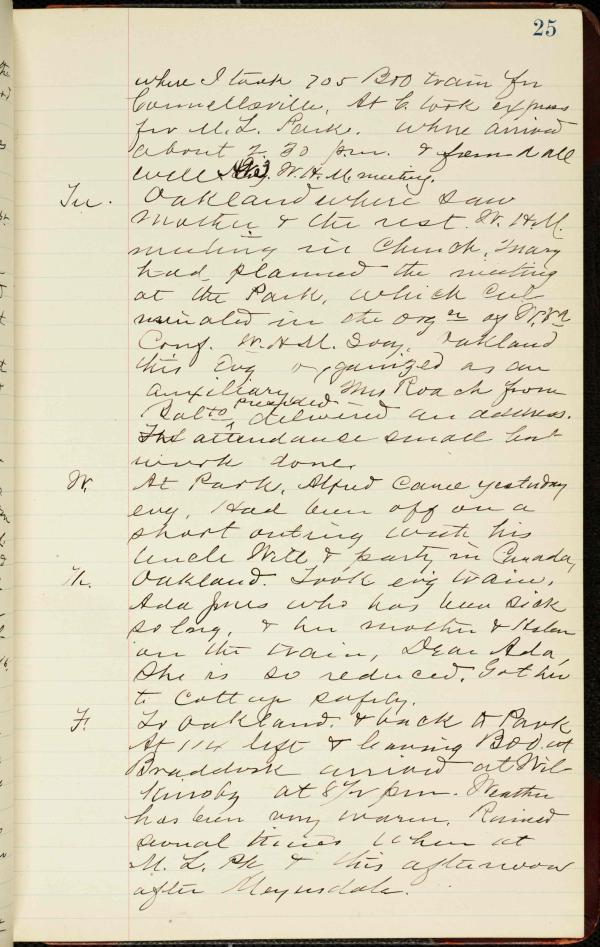 25
where I took 705 B&O train for
Connellsville. At C. took express
for M. L. Park. where arrived
about 2 30 p.m. & found all
well. W. H. M meeting.
Tu. Oakland where saw
Mother & the rest. W. H. M.
meeting in Church. Mary
had planned the meeting
at the Park, which cul-
minated in the orgn of W. Va
Conf. W. H. M. Socy. Oakland
this Evg organized as an
auxiliary. Mrs Roach from
Balto presided delivered an address.
The attendance small but
work done.
W. At Park. Alfred came yesterday
evg. Had been off on a
short outing with his
Uncle Will & party in Canada,
Th. Oakland. Took evg train.
Ada Jones who has been sick
so long, & her mother & Helen
on the train, Dear Ada,
she is so reduced. Got her
to Cottage safely.
F. To Oakland. & back to Park
At 114 left & leaving B&O. at
Braddock arrived at Wil
kinsbg at 8 1/2 p.m. Weather
has been very warm. Rained
several times when at
M. L. Pk & this afternoon
after Meyersdale.